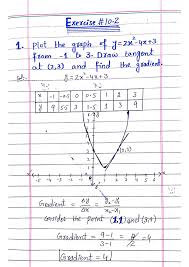 Exercise #10-2
1. Plot the graph of y=2x²-4x+3
from -1 to 3. Draw tangent
at (2,3) and find the gradient.
y=2x²-4x+3
x -1 -0.5 0 0.5 1 2 3
y 9 5.5 3 1.5 1 3 9
(2,3)
Gradient = Δy/Δx = y₂-y₁/x₂-x₁
Consider the point (1,1) and (3,9)
Gradient = 9-1/3-1 = 8/2 = 4
Gradient = 4